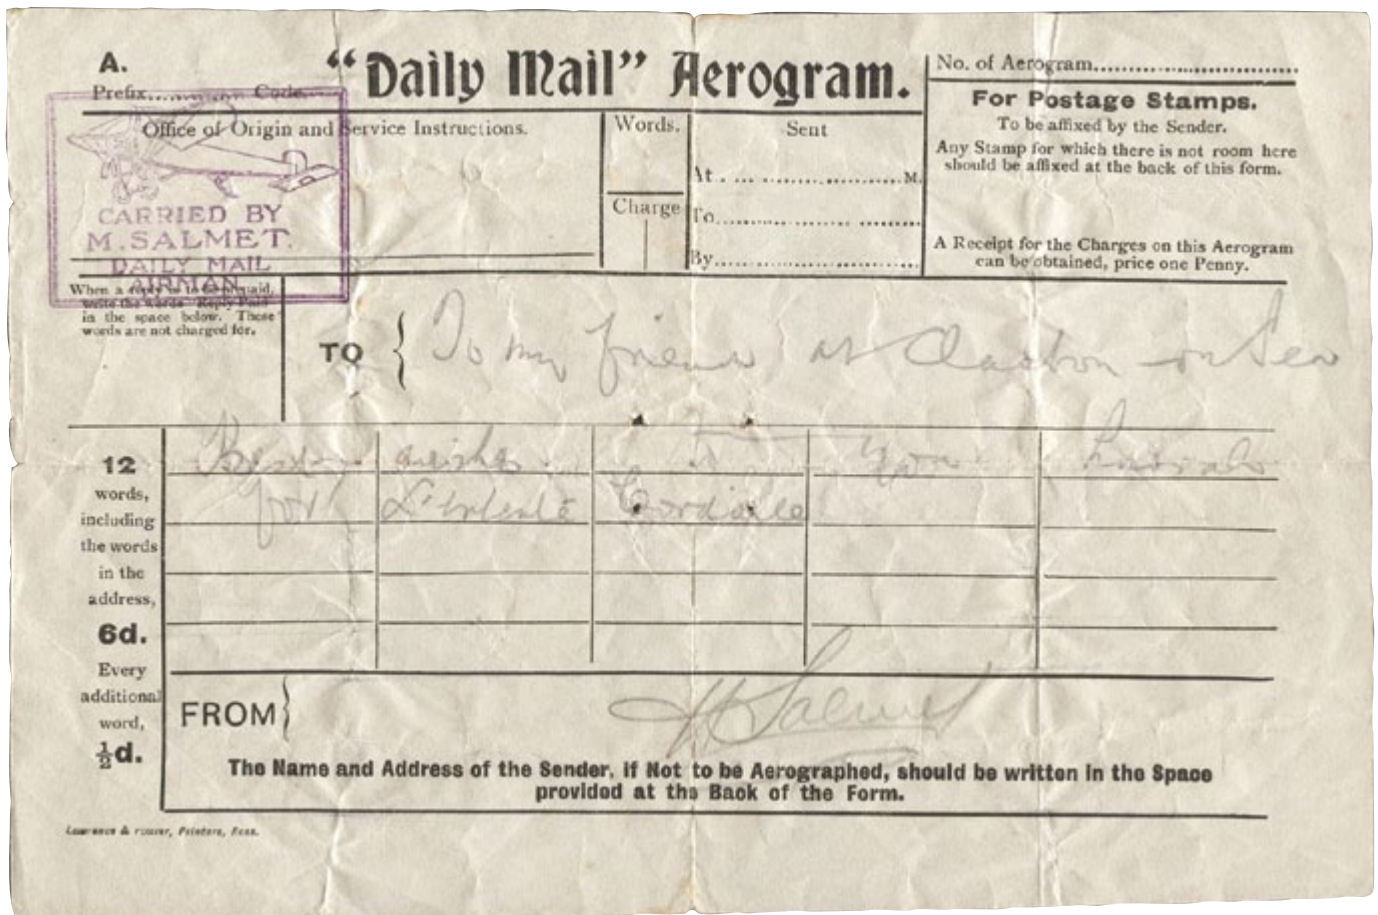 A.
"Daily Mail" Aerogram.
No. of Aerogram
Prefix Code
Office of Origin and Service Instructions.
Words.
Charge
Sent
At M.
To
By
For Postage Stamps.
To be affixed by the Sender.
Any Stamp for which there is not room here
should be affixed at the back of this form.
A Receipt for the Charges on this Aerogram
can be obtained, price one Penny.
CARRIED BY
M. SALMET.
DAILY MAIL
AIRMAN.
When a reply is to be prepaid,
write the words "Reply Paid"
in the space below. These
words are not charged for.
TO
To my friend at Clacton on Sea
Best wishes
for L'Entente Cordiale
12
words,
including
the words
in the
address,
6d.
Every
additional
word,
½d.
FROM
H Salmet
The Name and Address of the Sender, if Not to be Aerographed, should be written in the Space
provided at the Back of the Form.
Printers,